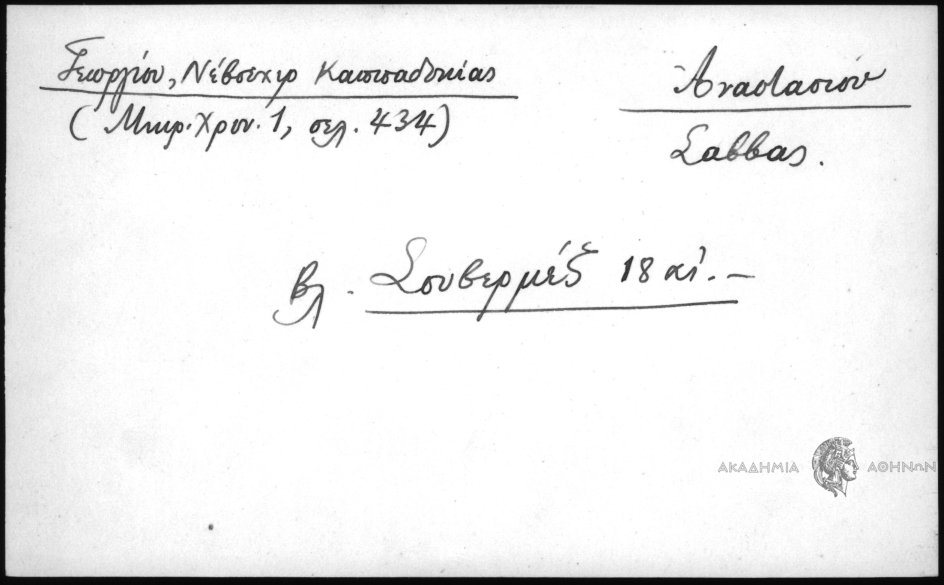 Γεωργίου, Νέβσεχιρ Καππαδοκίας
(Μικρ. Χρον. 1, σελ. 434)
Ἀναστασίου
Σαββας.
βλ. Σουβερμέξ 18 αἰ. –
ΑΚΑΔΗΜΙΑ ΑΘΗΝΩΝ